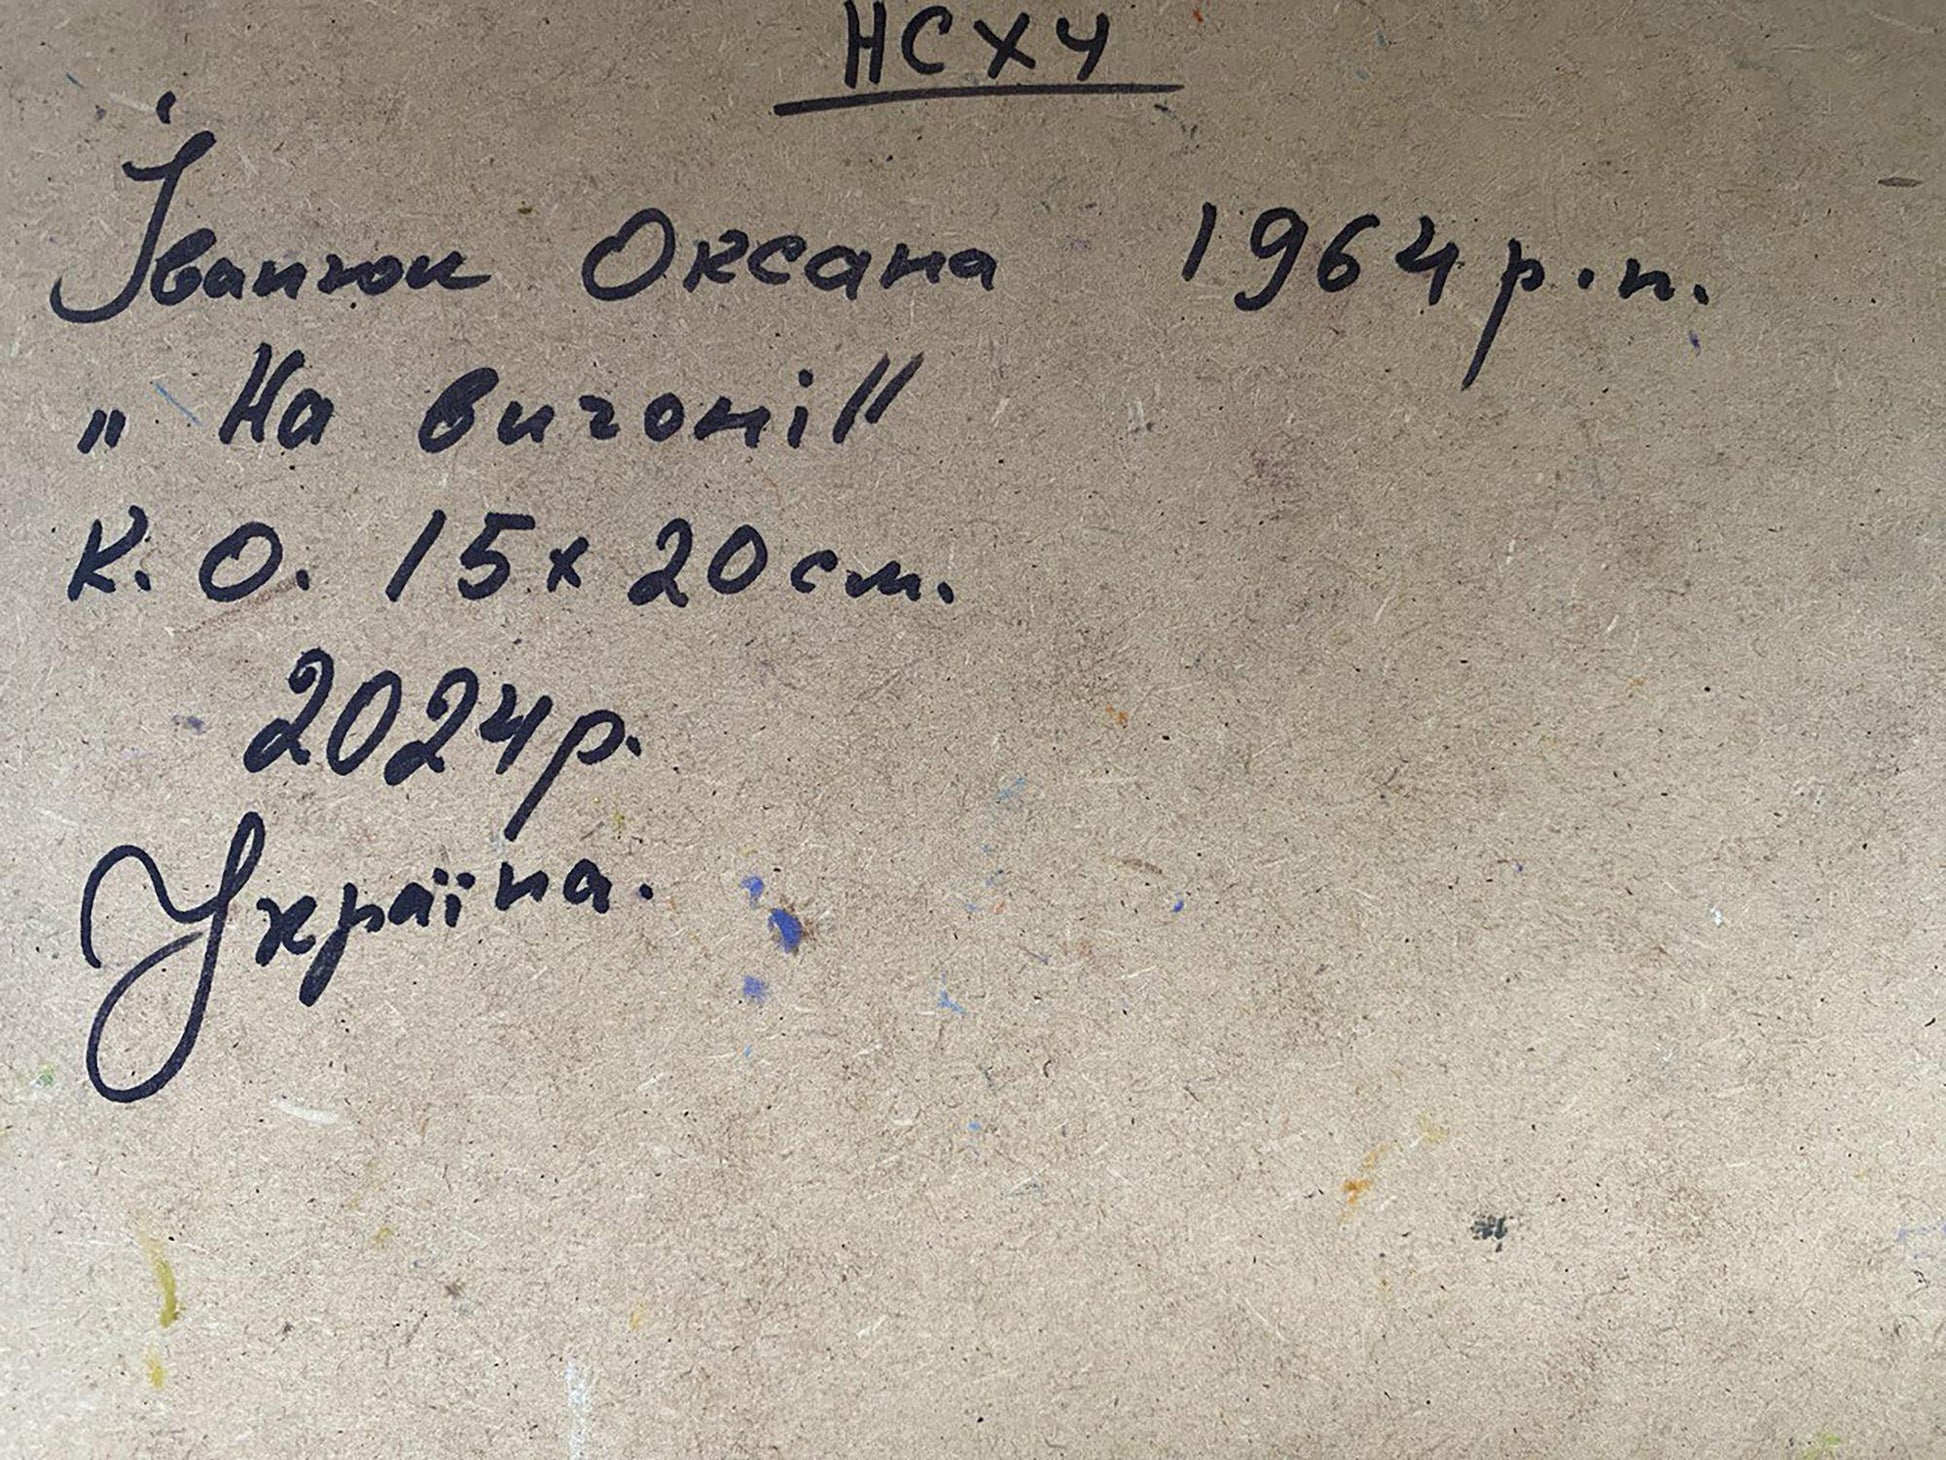 НСХУ
Іванюк Оксана 1964 р.н.
„На вигоні"
К. О. 15х20см.
2024р.
Україна.